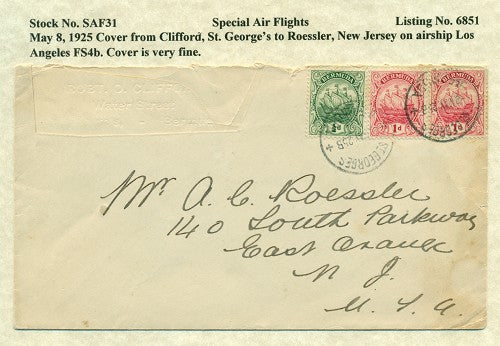 Stock No. SAF31 Special Air Flights Listing No. 6851
May 8, 1925 Cover from Clifford, St. George's to Roessler, New Jersey on airship Los
Angeles FS4b. Cover is very fine.
Water Street
BERMUDA BERMUDA BERMUDA
½d 1d 1d
ST. GEORGES
Mr A. C. Roessler
140 South Parkway
East Orange
N J.
U. S. A.